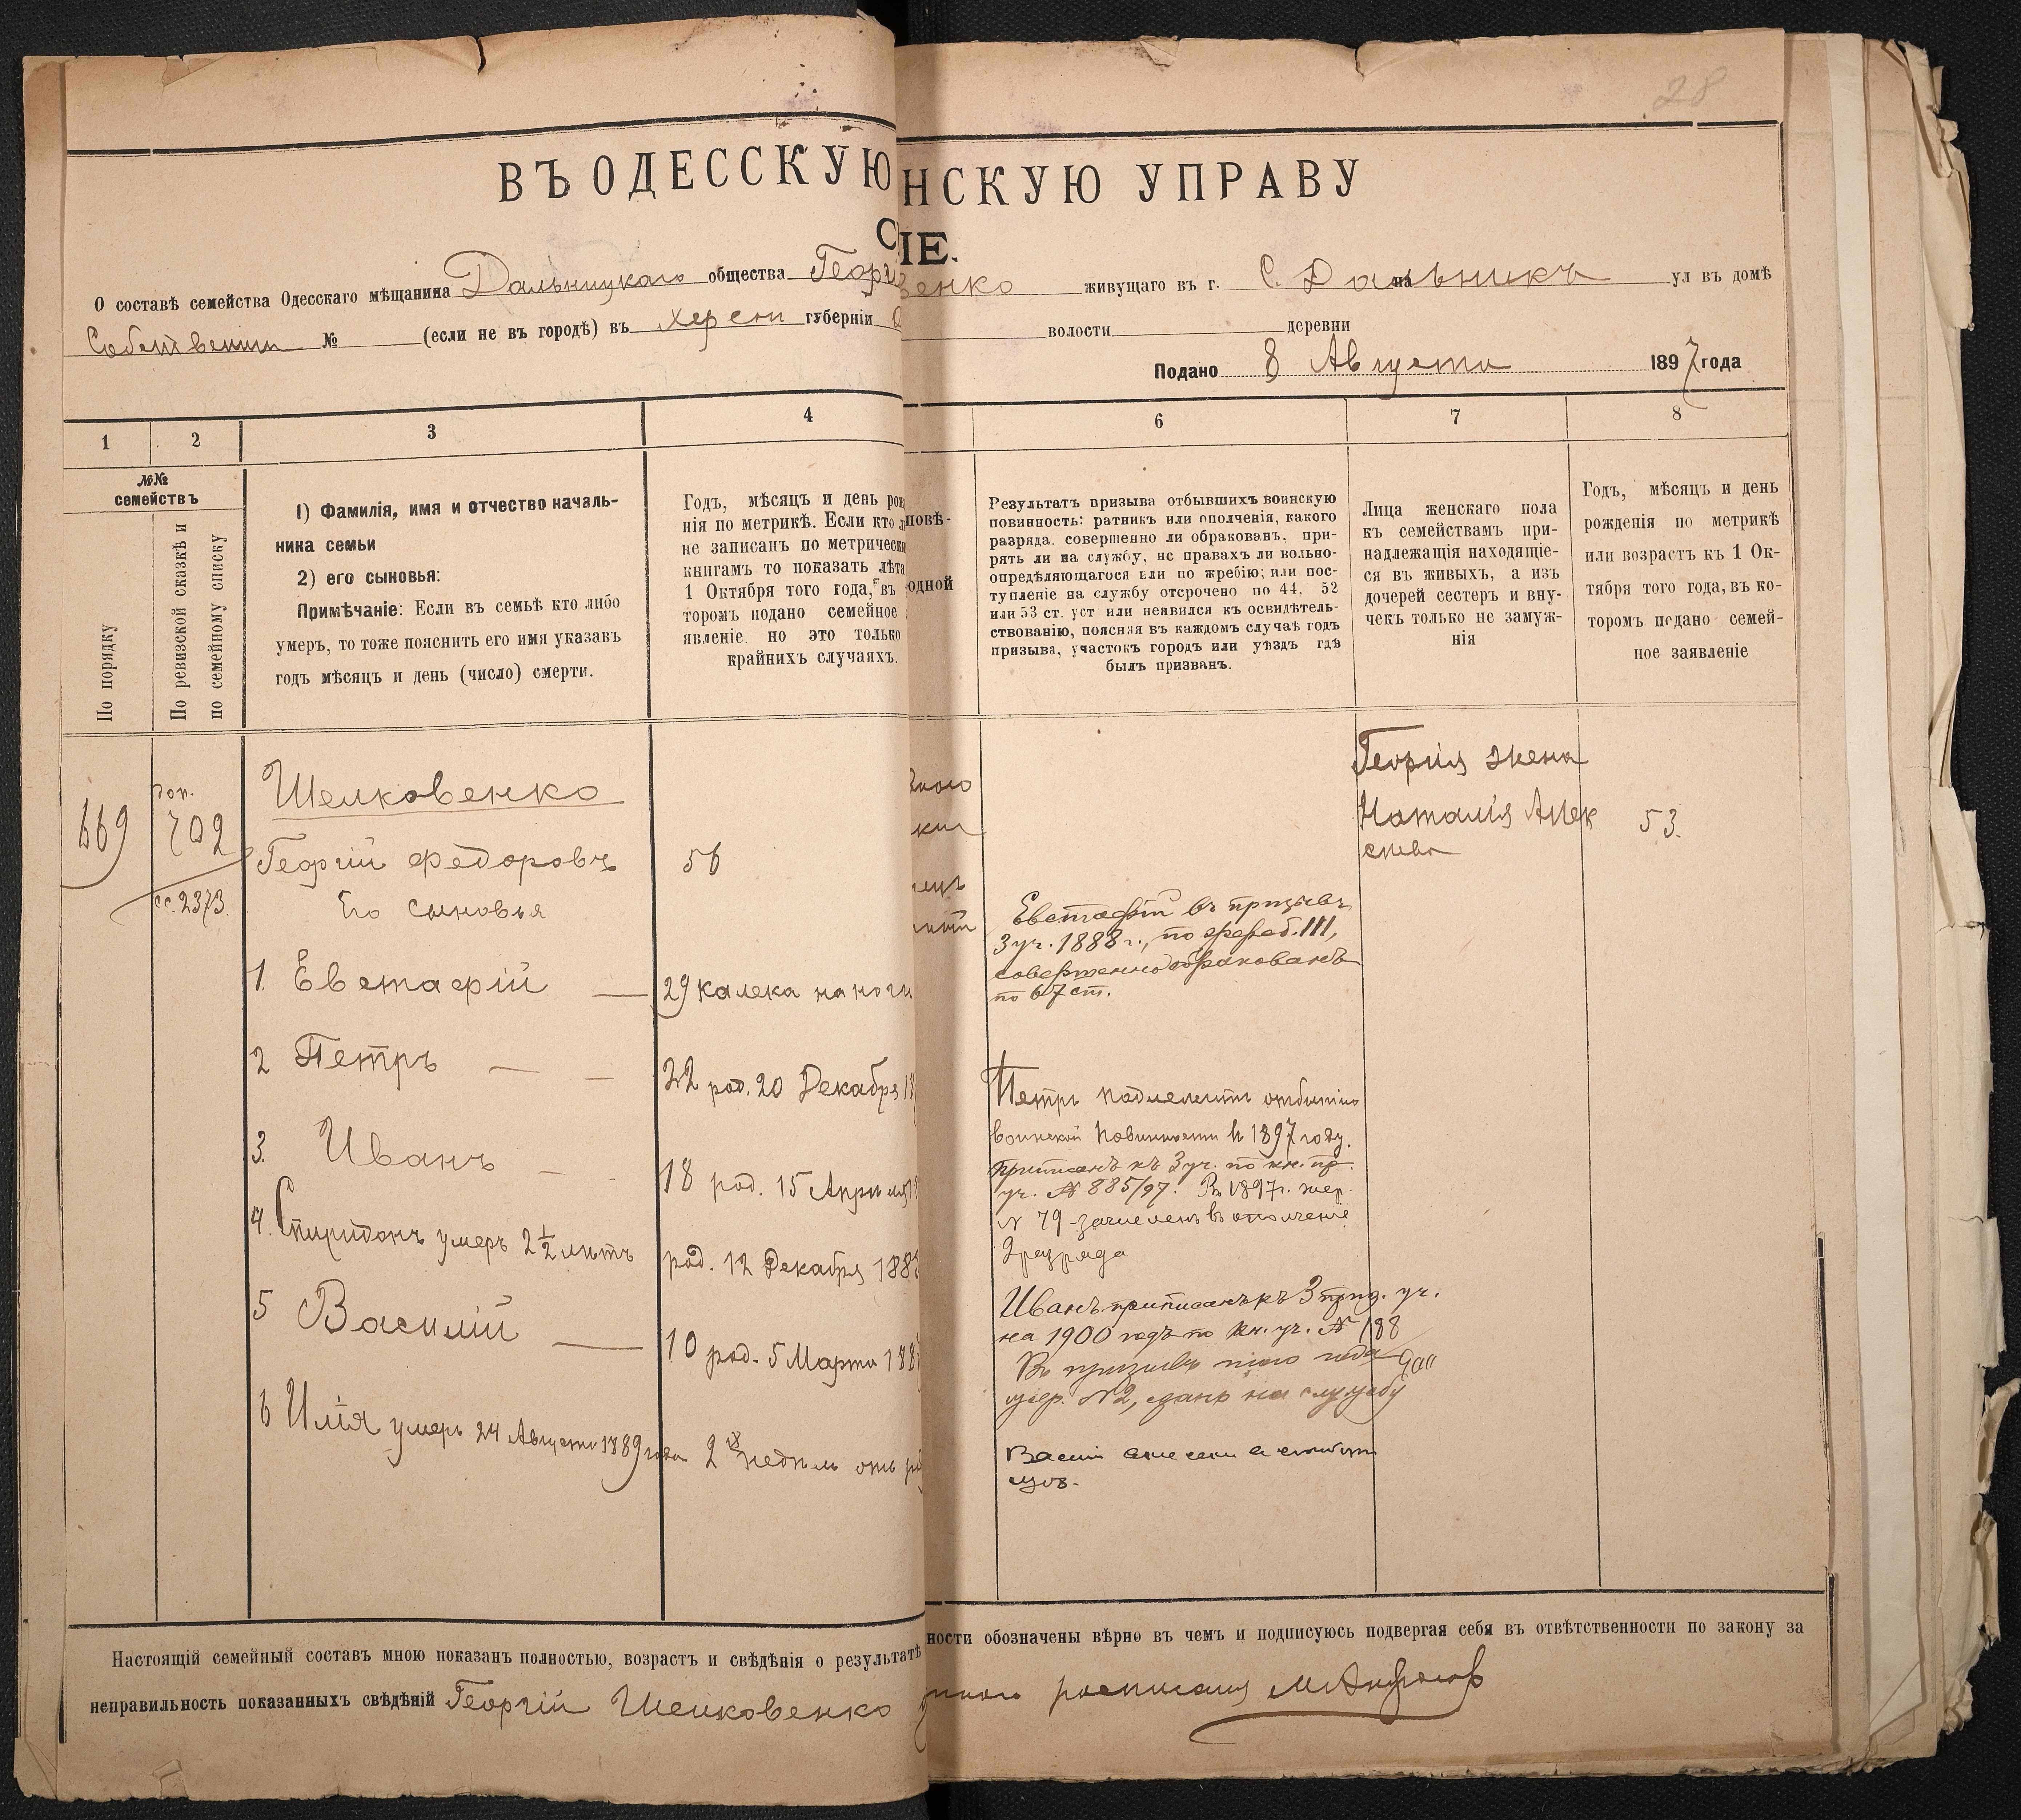 28
ВЪ ОДЕССКУЮ
НСКУЮ УПРАВУ
ІЕ.
О составѣ семейства Одесскаго мѣщанина Дальницкаго общества Георг
венко живущаго въ г. С. Дальникъ на ул въ домѣ
Собствении № (если не въ городѣ) въ Херсон губерніи
волости деревни
Подано 8 Августа 1897 года
1 2 3 4
6 7 8
№№
семействъ
По порядку
По ревизской сказкѣ и
по семейному списку
1) Фамилія, имя и отчество началь-
ника семьи
2) его сыновья:
Примѣчаніе: Если въ семьѣ кто либо
умеръ, то тоже пояснить его имя указавъ
годъ мѣсяцъ и день (число) смерти.
Годъ, мѣсяцъ и день рож
нія по метрикѣ. Если кто л
не записанъ по метрически
книгамъ то показать лѣта
1 Октября того года, въ
торомъ подано семейное
явленіе но это только
крайнихъ случаяхъ.
повѣ-
одной
Результатъ призыва отбывшихъ воинскую
повинность: ратникъ или ополченія, какого
разряда, совершенно ли обракованъ, при-
рять ли на службу, нс правахъ ли вольно-
опредѣляющагося или по жребію; или пос-
тупленіе на службу отсрочено по 44, 52
или 53 ст. уст или неявился къ освидѣтель-
ствованію, поясняя въ каждомъ случаѣ годъ
призыва, участокъ городъ или уѣздъ гдѣ
былъ призванъ.
Лица женскаго пола
къ семействамъ при-
надлежащія находящіе-
ся въ живыхъ, а изъ
дочерей сестеръ и вну-
чекъ только не замуж-
нія
Годъ, мѣсяцъ и день
рожденія по метрикѣ
или возрастъ къ 1 Ок-
тября того года, въ ко-
торомъ подано семей-
ное заявленіе
669
702
сс. 2373.
Шелковенко
Георгій Федоровъ 56
Его сыновья
1. Евстафій 29 калека на ноги
2 Петръ 22 род. 20 Декабря 18
3. Иванъ 18 род. 15 Апрѣля 1
4. Спиридонъ умеръ 2½ лѣтъ род. 12 Декабря 188
5 Василій 10 род. 5 Марта 188
6 Илія умеръ 24 Августа 1889 года 2х недѣль отъ
Евстафій въ призывъ
3 уч. 1888 г., по жереб. 111,
совершенно обракованъ
по 67 ст.
Петръ подлежитъ отбытію
воинской повинности въ 1897 году.
приписанъ къ 3 уч. по кн. пр.
уч. № 885/97. Въ 1897 г. жер.
№ 79 - зачисленъ въ ополченіе
2 разряда
Иванъ приписанъ къ 3 приз. уч.
на 1900 годъ по кн. уч. № 188
Въ призывъ того года
жер. № 2, сданъ на службу
Георгія жена
Наталія Алек
сѣева
53.
Настоящій семейный составъ мною показанъ полностью, возрастъ и свѣдѣнія о результатѣ
ности обозначены вѣрно въ чемъ и подписуюсь подвергая себя въ отвѣтственности по закону за
неправильность показанныхъ свѣдѣній Георгій Шелковенко